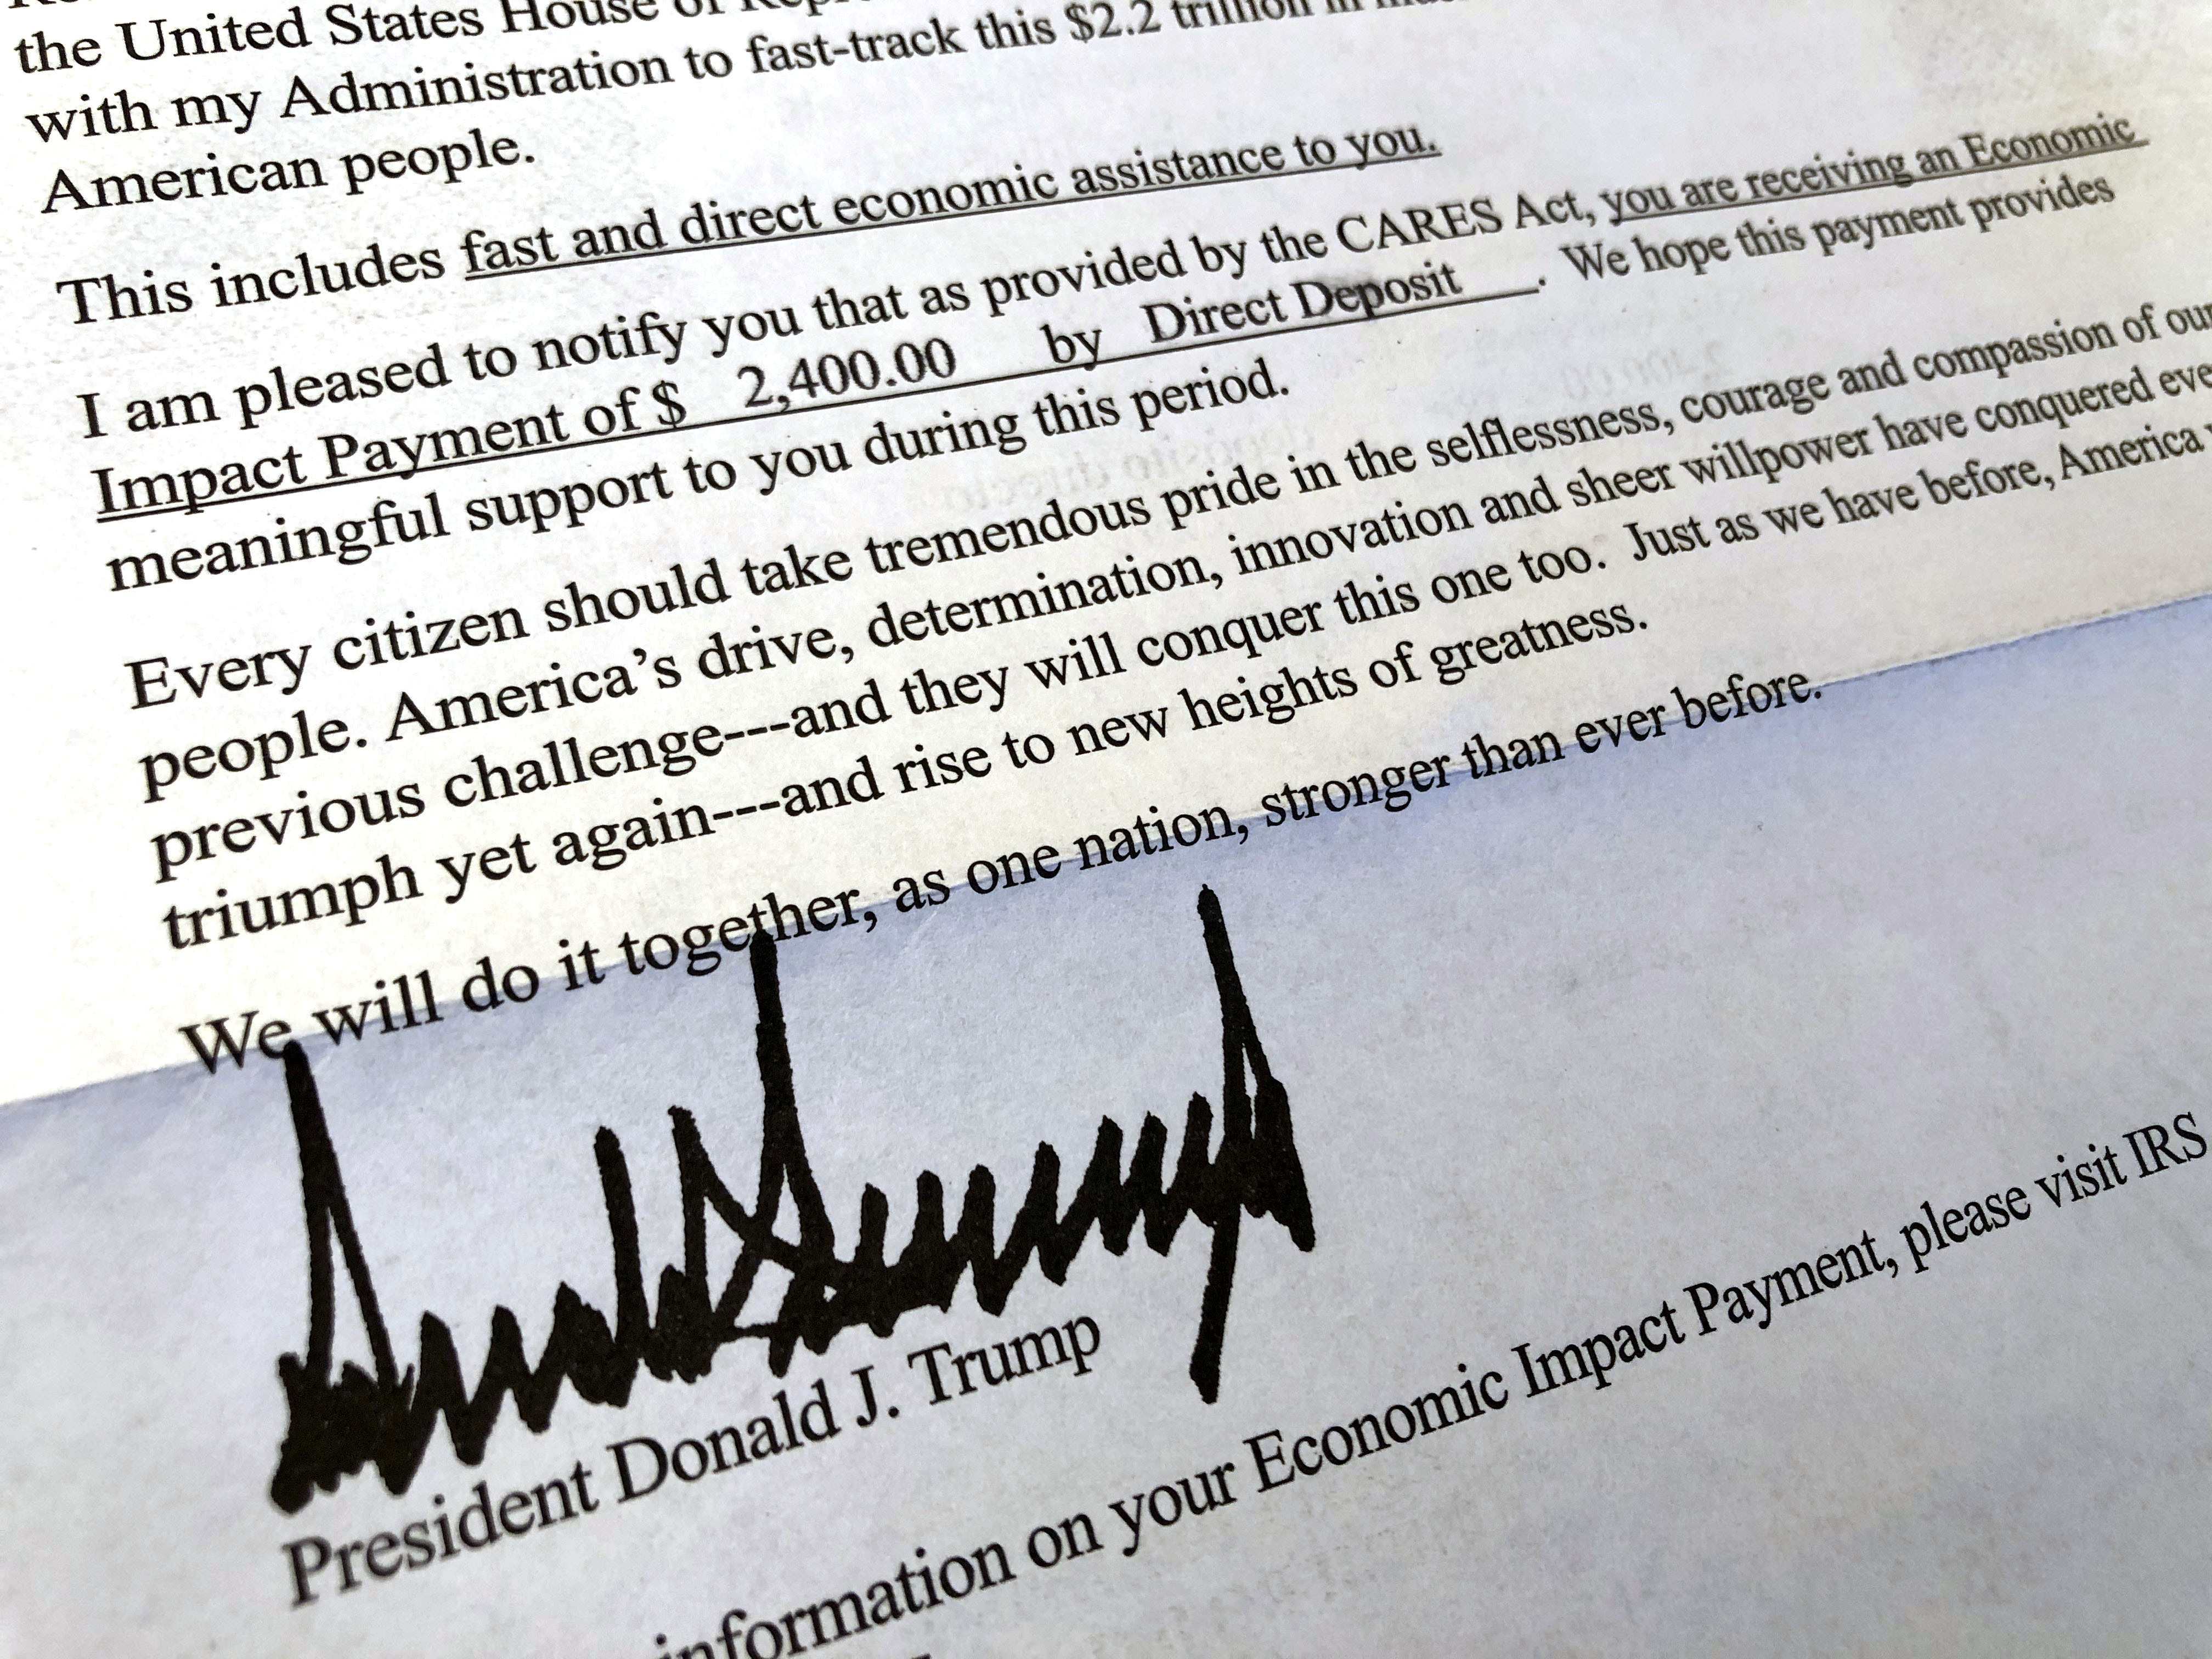 the United States House of
with my Administration to fast-track this $2.2 trillion in
American people.
This includes fast and direct economic assistance to you.
I am pleased to notify you that as provided by the CARES Act, you are receiving an Economic
Impact Payment of $ 2,400.00 by Direct Deposit . We hope this payment provides
meaningful support to you during this period.
Every citizen should take tremendous pride in the selflessness, courage and compassion of our
people. America's drive, determination, innovation and sheer willpower have conquered
previous challenge---and they will conquer this one too. Just as we have before, America
triumph yet again---and rise to new heights of greatness.
We will do it together, as one nation, stronger than ever before.
President Donald J. Trump
information on your Economic Impact Payment, please visit IRS